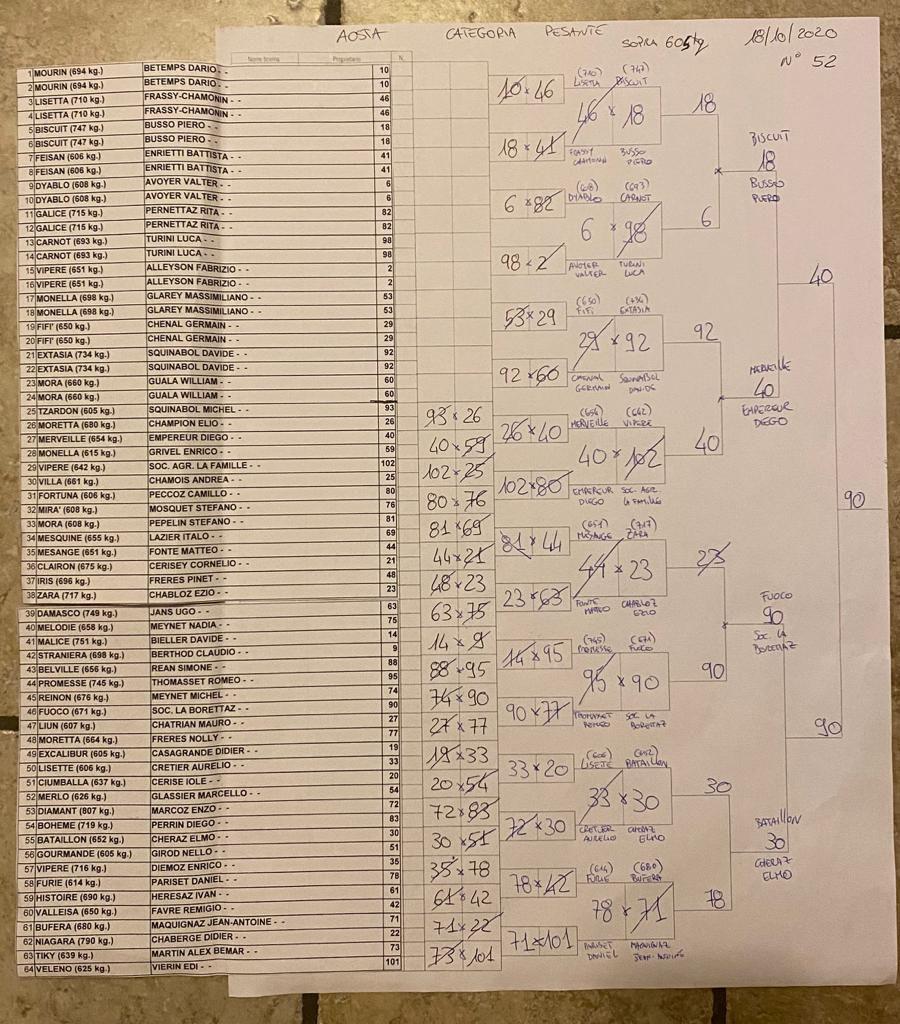 AOSTA CATEGORIA PESANTE SOPRA 605 kg 18/10/2020
N° 52
Nome bovina Proprietario N.
1 MOURIN (694 kg.) BETEMPS DARIO - - 10
2 MOURIN (694 kg.) BETEMPS DARIO - - 10
3 LISETTA (710 kg.) FRASSY-CHAMONIN - - 46
4 LISETTA (710 kg.) FRASSY-CHAMONIN - - 46
5 BISCUIT (747 kg.) BUSSO PIERO - - 18
6 BISCUIT (747 kg.) BUSSO PIERO - - 18
7 FEISAN (606 kg.) ENRIETTI BATTISTA - - 41
8 FEISAN (606 kg.) ENRIETTI BATTISTA - - 41
9 DYABLO (608 kg.) AVOYER VALTER - - 6
10 DYABLO (608 kg.) AVOYER VALTER - - 6
11 GALICE (715 kg.) PERNETTAZ RITA - - 82
12 GALICE (715 kg.) PERNETTAZ RITA - - 82
13 CARNOT (693 kg.) TURINI LUCA - - 98
14 CARNOT (693 kg.) TURINI LUCA - - 98
15 VIPERE (651 kg.) ALLEYSON FABRIZIO - - 2
16 VIPERE (651 kg.) ALLEYSON FABRIZIO - - 2
17 MONELLA (698 kg.) GLAREY MASSIMILIANO - - 53
18 MONELLA (698 kg.) GLAREY MASSIMILIANO - - 53
19 FIFI' (650 kg.) CHENAL GERMAIN - - 29
20 FIFI' (650 kg.) CHENAL GERMAIN - - 29
21 EXTASIA (734 kg.) SQUINABOL DAVIDE - - 92
22 EXTASIA (734 kg.) SQUINABOL DAVIDE - - 92
23 MORA (660 kg.) GUALA WILLIAM - - 60
24 MORA (660 kg.) GUALA WILLIAM - - 60
25 TZARDON (605 kg.) SQUINABOL MICHEL - - 93
26 MORETTA (680 kg.) CHAMPION ELIO - - 26
27 MERVEILLE (654 kg.) EMPEREUR DIEGO - - 40
28 MONELLA (615 kg.) GRIVEL ENRICO - - 59
29 VIPERE (642 kg.) SOC. AGR. LA FAMILLE - - 102
30 VILLA (661 kg.) CHAMOIS ANDREA - - 25
31 FORTUNA (606 kg.) PECCOZ CAMILLO - - 80
32 MIRA' (608 kg.) MOSQUET STEFANO - - 76
33 MORA (608 kg.) PEPELIN STEFANO - - 81
34 MESQUINE (655 kg.) LAZIER ITALO - - 69
35 MESANGE (651 kg.) FONTE MATTEO - - 44
36 CLAIRON (675 kg.) CERISEY CORNELIO - - 21
37 IRIS (696 kg.) FRERES PINET - - 48
38 ZARA (717 kg.) CHABLOZ EZIO - - 23
39 DAMASCO (749 kg.) JANS UGO - - 63
40 MELODIE (658 kg.) MEYNET NADIA - - 75
41 MALICE (751 kg.) BIELLER DAVIDE - - 14
42 STRANIERA (698 kg.) BERTHOD CLAUDIO - - 9
43 BELVILLE (656 kg.) REAN SIMONE - - 88
44 PROMESSE (745 kg.) THOMASSET ROMEO - - 95
45 REINON (676 kg.) MEYNET MICHEL - - 74
46 FUOCO (671 kg.) SOC. LA BORETTAZ - - 90
47 LIUN (607 kg.) CHATRIAN MAURO - - 27
48 MORETTA (664 kg.) FRERES NOLLY - - 77
49 EXCALIBUR (605 kg.) CASAGRANDE DIDIER - - 19
50 LISETTE (606 kg.) CRETIER AURELIO - - 33
51 CIUMBALLA (637 kg.) CERISE IOLE - - 20
52 MERLO (626 kg.) GLASSIER MARCELLO - - 54
53 DIAMANT (807 kg.) MARCOZ ENZO - - 72
54 BOHEME (719 kg.) PERRIN DIEGO - - 83
55 BATAILLON (652 kg.) CHERAZ ELMO - - 30
56 GOURMANDE (605 kg.) GIROD NELLO - - 51
57 VIPERE (716 kg.) DIEMOZ ENRICO - - 35
58 FURIE (614 kg.) PARISET DANIEL - - 78
59 HISTOIRE (690 kg.) HERESAZ IVAN - - 61
60 VALLEISA (650 kg.) FAVRE REMIGIO - - 42
61 BUFERA (680 kg.) MAQUIGNAZ JEAN-ANTOINE - - 71
62 NIAGARA (790 kg.) CHABERGE DIDIER - - 22
63 TIKY (639 kg.) MARTIN ALEX BEMAR - - 73
64 VELENO (625 kg.) VIERIN EDI - - 101
93 x 26
40 x 59
102 x 25
80 x 76
81 x 69
44 x 21
48 x 23
63 x 75
14 x 9
88 x 95
74 x 90
27 x 77
19 x 33
20 x 54
72 x 83
30 x 51
35 x 78
61 x 42
71 x 22
73 x 101
10 x 46
18 x 41
6 x 82
98 x 2
53 x 29
92 x 60
26 x 40
102 x 80
81 x 44
23 x 63
14 x 95
90 x 77
33 x 20
72 x 30
78 x 42
71 x 101
(710) (747)
LISETTA BISCUIT
46 x 18
FRASSY BUSSO
CHAMONIN PIERO
(608) (693)
DYABLO CARNOT
6 x 98
AVOYER TURINI
VALTER LUCA
(650) (734)
FIFI EXTASIA
29 x 92
CHENAL SQUINABOL
GERMAIN DAVIDE
(654) (642)
MERVEILLE VIPERE
40 x 102
EMPEREUR SOC. AGR.
DIEGO LA FAMILLE
(651) (717)
MESANGE ZARA
44 x 23
FONTE CHABLOZ
MATTEO EZIO
(745) (671)
PROMESSE FUOCO
95 x 90
THOMASSET SOC. LA
ROMEO BORETTAZ
(606) (652)
LISETE BATAILLON
33 x 30
CRETIER CHERAZ
AURELIO ELMO
(614) (680)
FURIE BUFERA
78 x 71
PARISET MAQUIGNAZ
DANIEL JEAN-ANTOINE
18
6
92
40
23
90
30
78
BISCUIT
18
BUSSO
PIERO
MERVEILLE
40
EMPEREUR
DIEGO
FUOCO
90
SOC. LA
BORETTAZ
BATAILLON
30
CHERAZ
ELMO
40
90
90